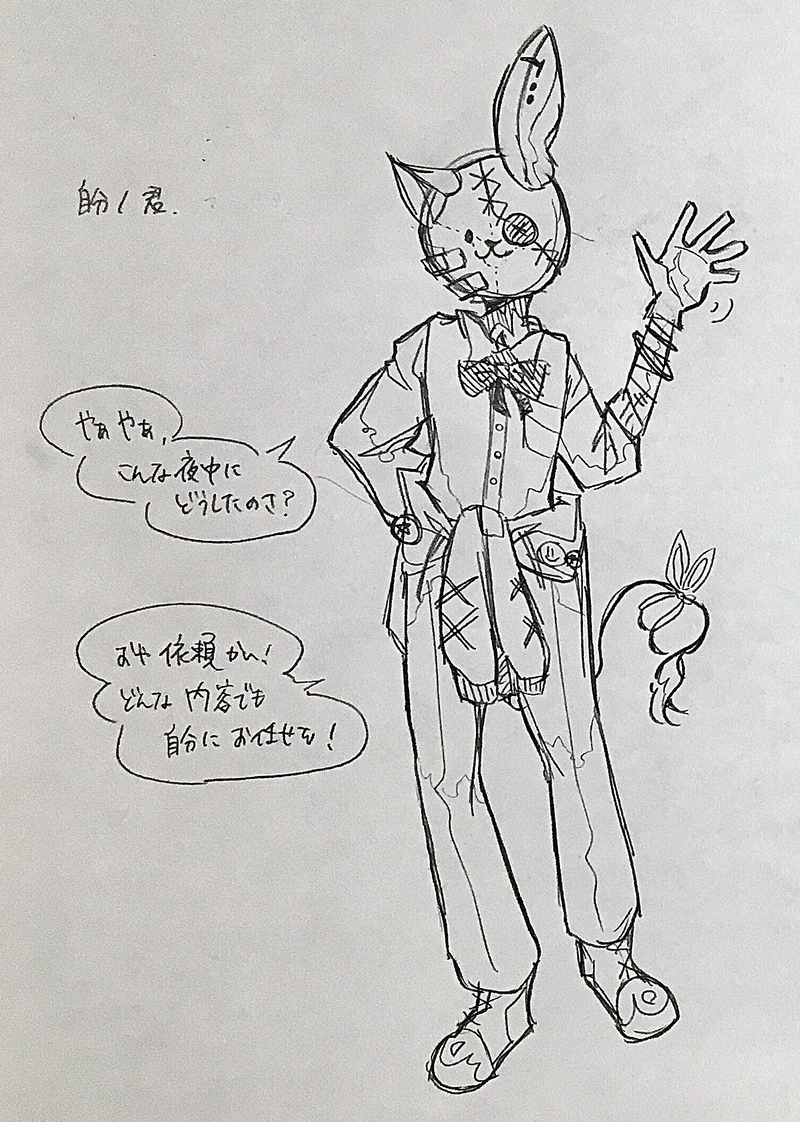 自分 / 君.
やぁやぁ,
こんな夜中に
どうしたのさ?
おや 依頼かい!
どんな 内容でも
自分に お任せを!